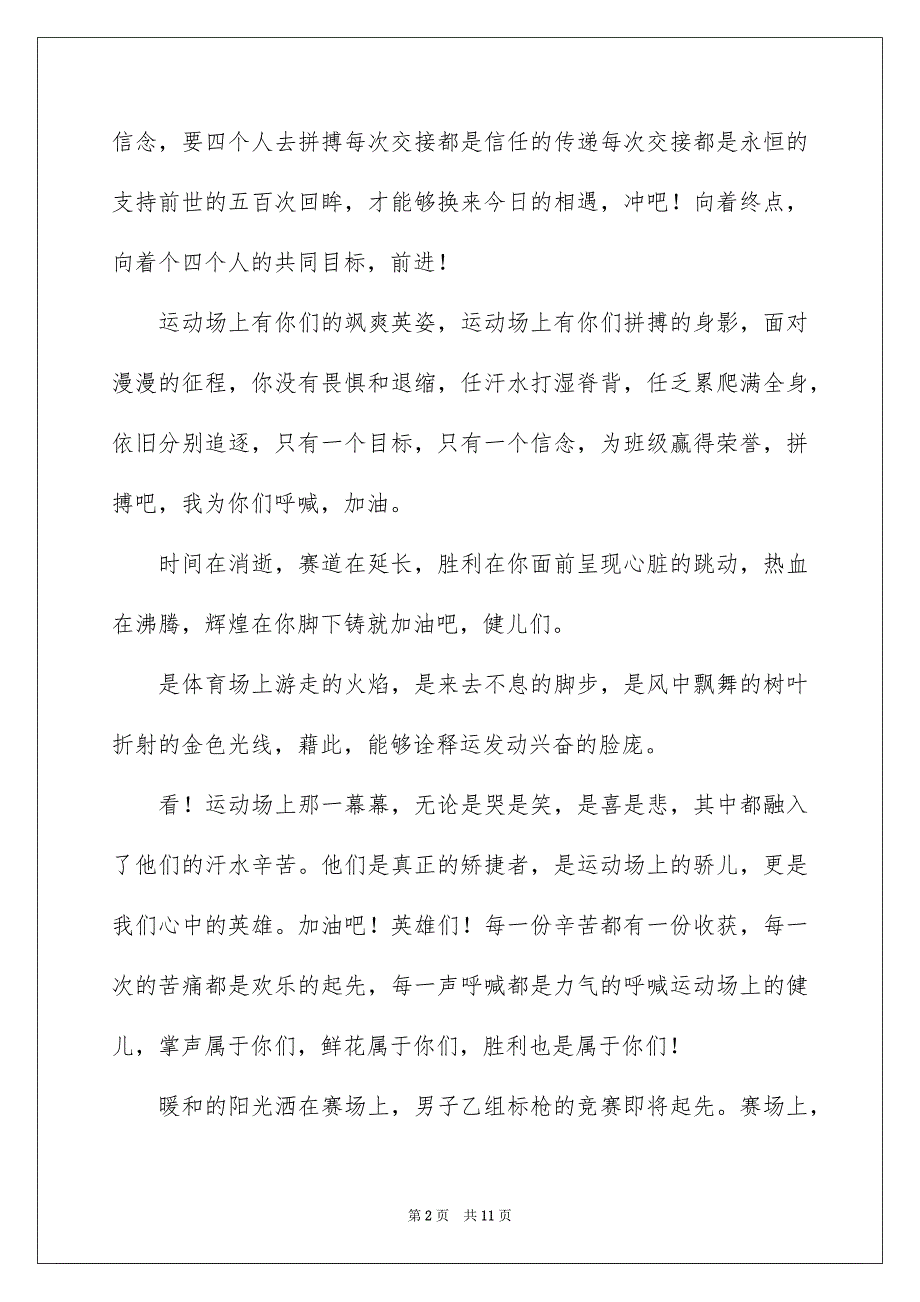 信念，要四个人去拼搏每次交接都是信任的传递每次交接都是永恒的
支持前世的五百次回眸，才能够换来今日的相遇，冲吧！向着终点，
向着个四个人的共同目标，前进！
运动场上有你们的飒爽英姿，运动场上有你们拼搏的身影，面对
漫漫的征程，你没有畏惧和退缩，任汗水打湿脊背，任乏累爬满全身，
依旧分别追逐，只有一个目标，只有一个信念，为班级赢得荣誉，拼
搏吧，我为你们呼喊，加油。
时间在消逝，赛道在延长，胜利在你面前呈现心脏的跳动，热血
在沸腾，辉煌在你脚下铸就加油吧，健儿们。
是体育场上游走的火焰，是来去不息的脚步，是风中飘舞的树叶
折射的金色光线，藉此，能够诠释运发动兴奋的脸庞。
看！运动场上那一幕幕，无论是哭是笑，是喜是悲，其中都融入
了他们的汗水辛苦。他们是真正的矫捷者，是运动场上的骄儿，更是
我们心中的英雄。加油吧！英雄们！每一份辛苦都有一份收获，每一
次的苦痛都是欢乐的起先，每一声呼喊都是力气的呼喊运动场上的健
儿，掌声属于你们，鲜花属于你们，胜利也是属于你们！
暖和的阳光洒在赛场上，男子乙组标枪的竞赛即将起先。赛场上，
第 2 页 共 11 页